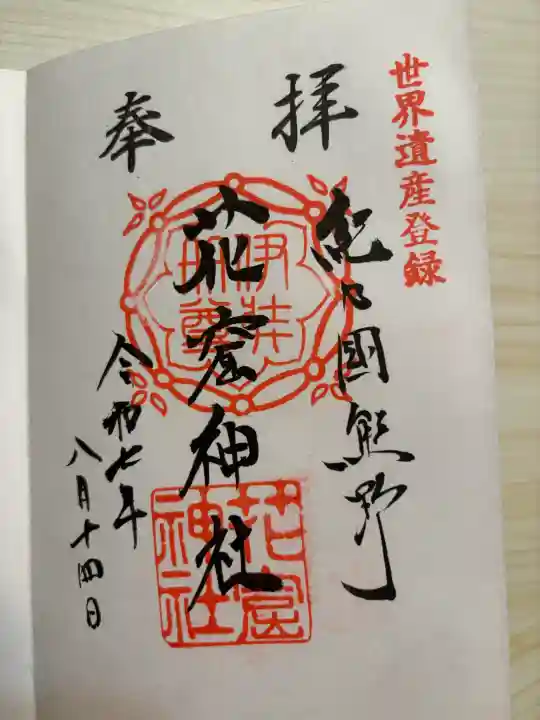 世界遺産登録
奉拝
紀乃國熊野
花窟神社
令和七年
八月十四日
伊弉冊尊
花窟神社